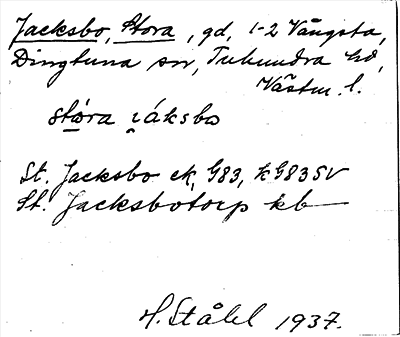 Jacksbo, Stora, gd, 1-2 Vångsta,
Dingtuna sn, Tuhundra hd,
Västm. l.
stóra i̯áksbo
St. Jacksbo ek, G83, kG83SV
St. Jacksbotorp kb
H. Ståhl 1937.